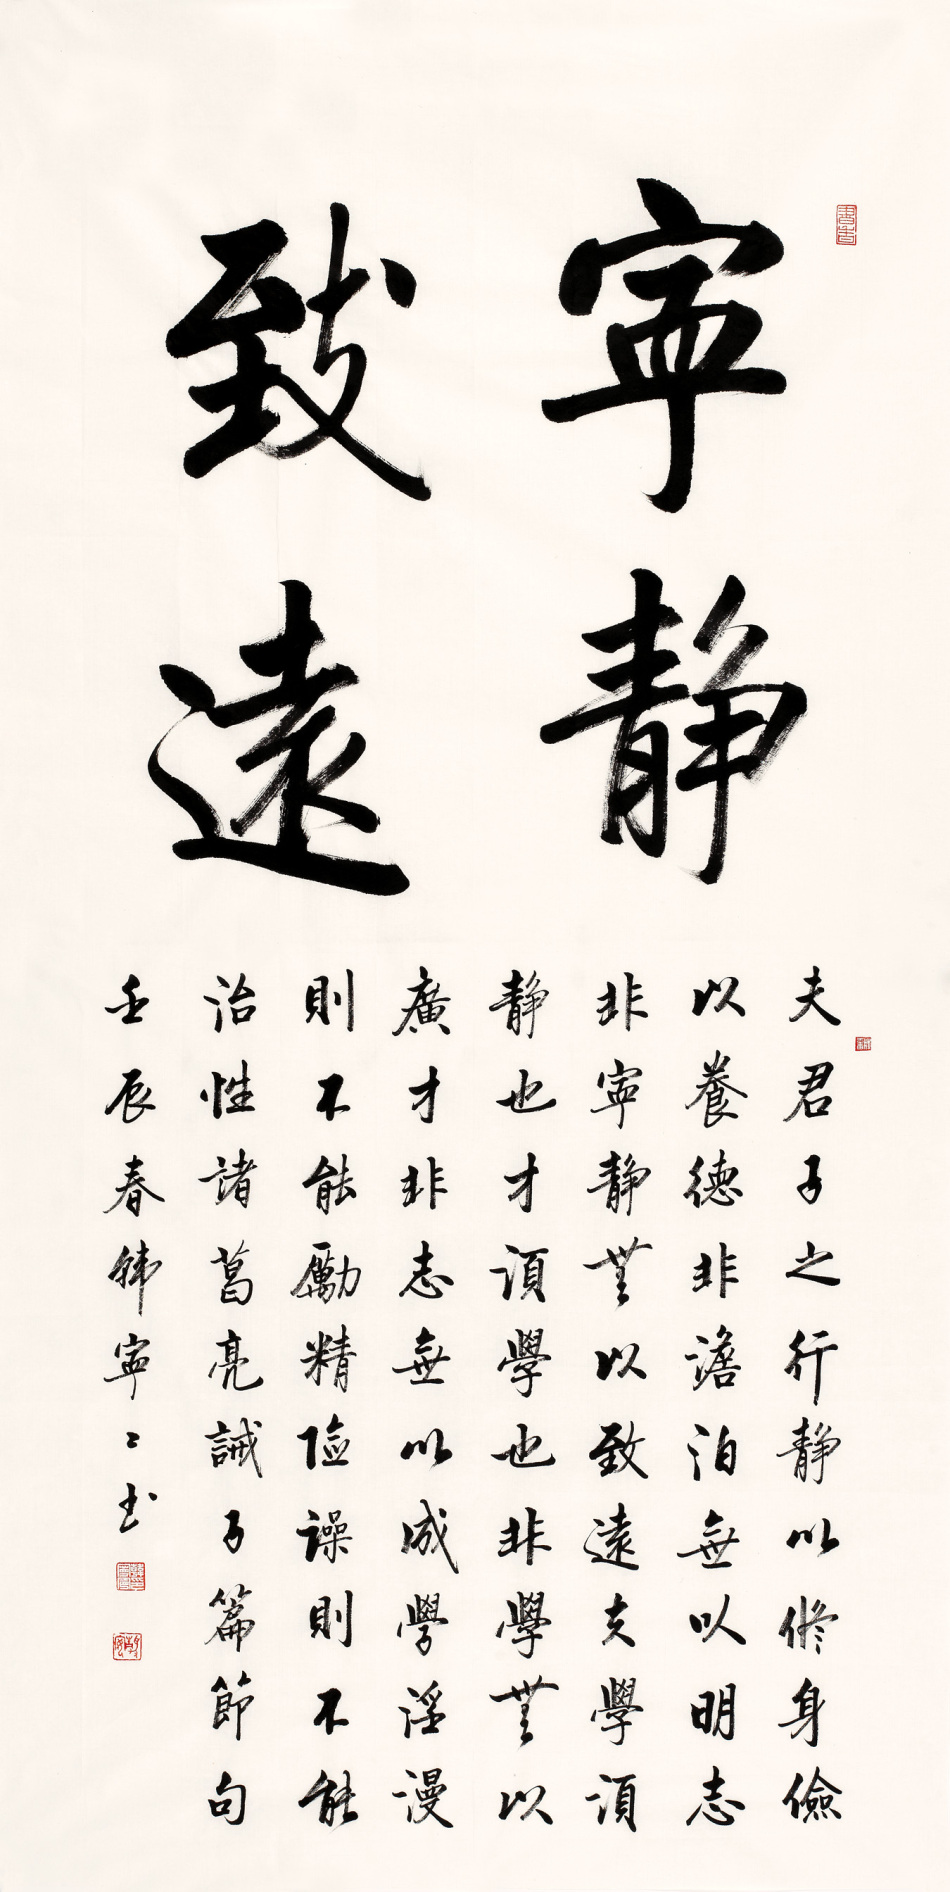 寧靜
致遠
夫君子之行靜以修身儉
以養德非澹泊無以明志
非寧靜無以致遠夫學須
靜也才須學也非學無以
廣才非志無以成學淫漫
則不能勵精險躁則不能
治性諸葛亮誡子篇節句
壬辰春韩寧寧书